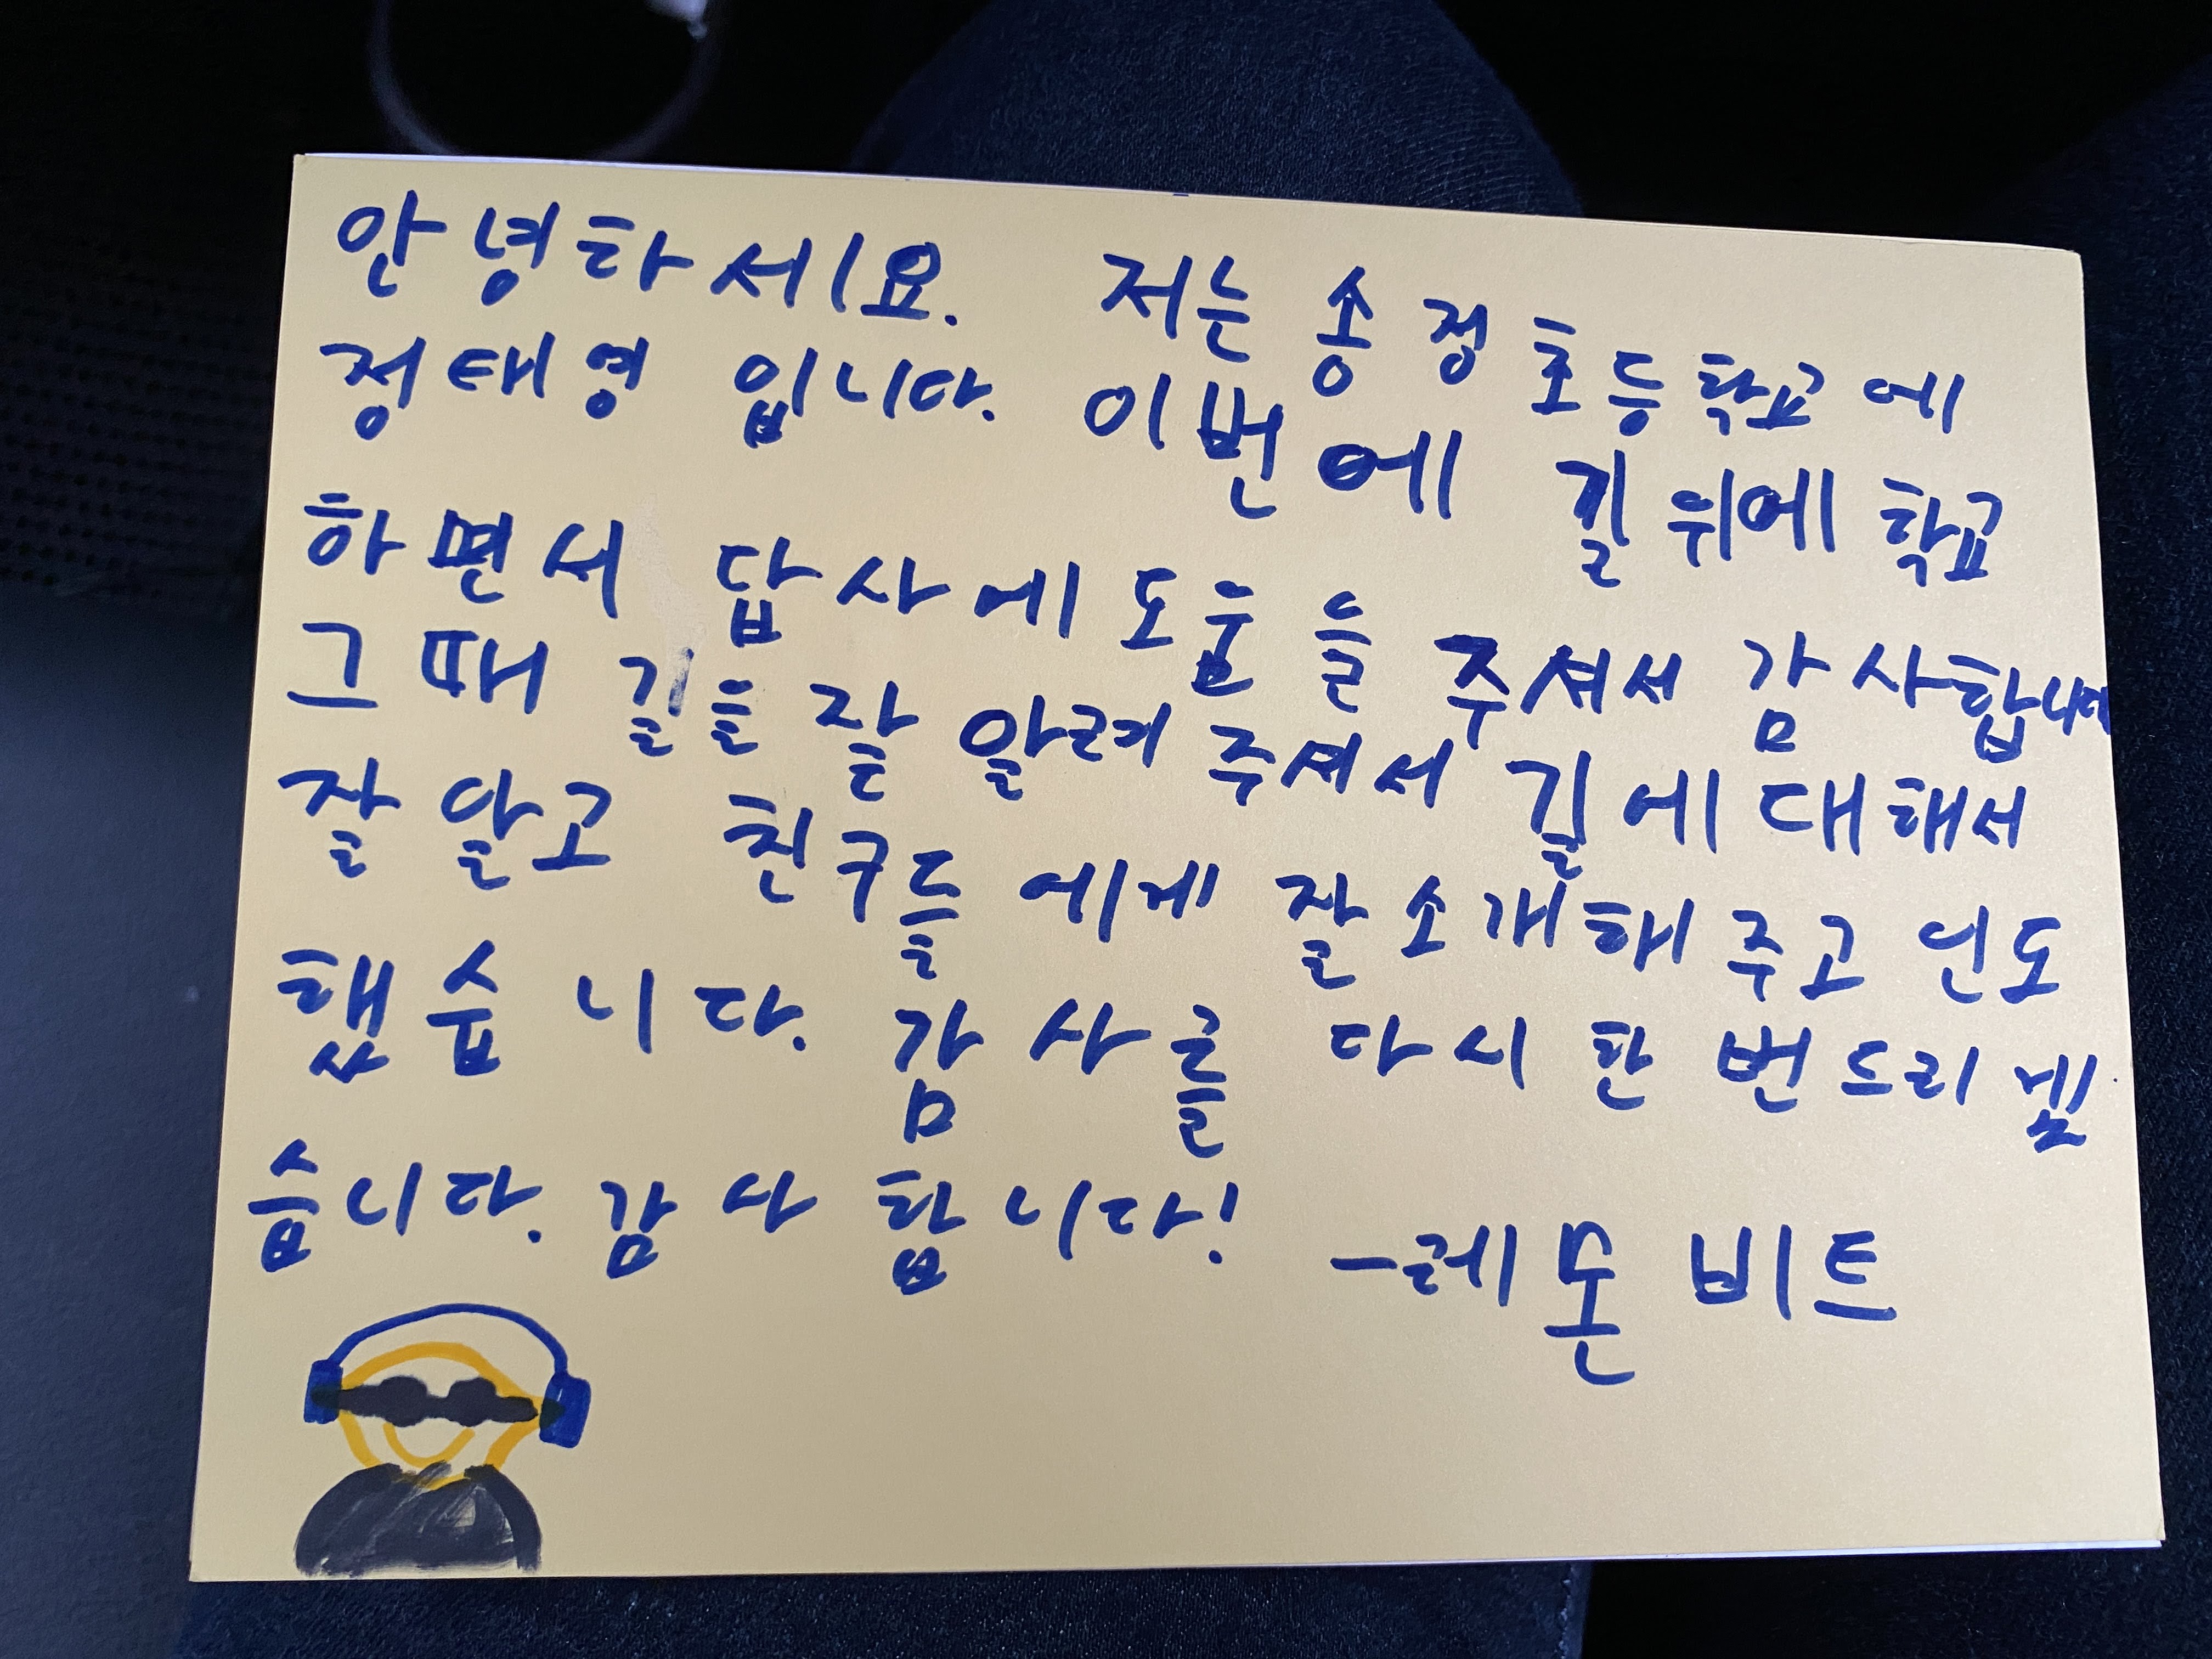 안녕하세요. 저는 송정초등학교에
정태영 입니다. 이번에 길위에 학교
하면서 답사에 도움을 주셔서 감사합니다
그때 길을 잘 알려 주셔서 길에 대해서
잘 알고 친구들에게 잘 소개해 주고 인도
했습니다. 감사를 다시 한 번 드리겠
습니다. 감사합니다!
-레몬 비트